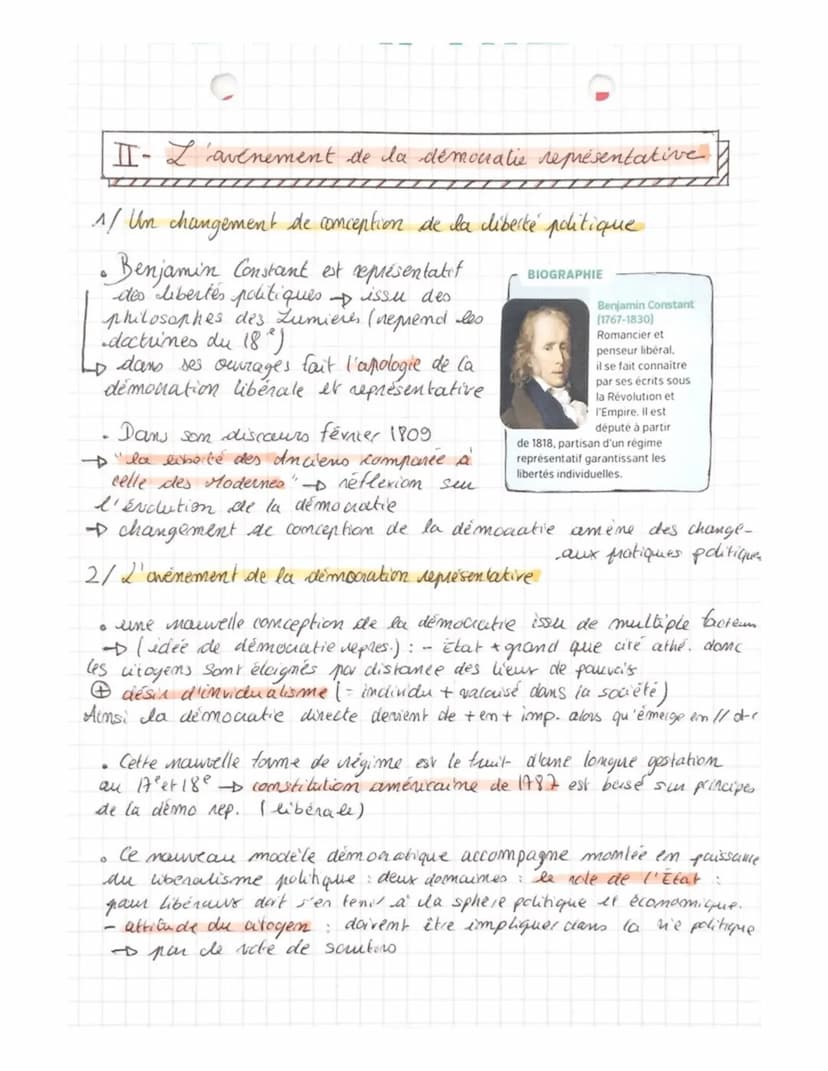 II- L'avénement de la démocratie représentative
1/ Un changement de conception de la liberté politique
• Benjamin Constant est représentatif
des libertés politiques → issu des
philosophes des Lumières (reprend les
doctrines du 18e)
→ dans ses ouvrages fait l'apologie de la
démocration libérale et représentative
BIOGRAPHIE
Benjamin Constant
(1767-1830)
Romancier et
penseur libéral,
il se fait connaître
par ses écrits sous
la Révolution et
l'Empire. Il est
député à partir
de 1818, partisan d'un régime
représentatif garantissant les
libertés individuelles.
• Dans son discours février 1809
→ "la liberté des Anciens comparée à
celle des Modernes" → réflexion sur
l'évolution de la démocratie
→ changement de conception de la démocratie amène des change-
aux pratiques politiques
2/ L'avénement de la démocration représentative
• une nouvelle conception de la démocratie issu de multiple facteurs
→ (idée de démocratie repres.) : - Etat + grand que cité athé. donc
les citoyens sont éloignés par distance des lieux de pouvoirs
⊕ désir d'invidualisme (= individu + valorisé dans la société)
Ainsi la démocratie directe devient de + en + imp. alors qu'émerge en //
• Cette nouvelle forme de régime est le fruit d'une longue gestation
au 17e et 18e → constitution américaine de 1787 est basé sur principes
de la démo rep. (libérale)
• Ce nouveau modèle démocratique accompagne montée en puissance
du liberalisme politique : deux domaines : le role de l'État :
pour libéraux doit s'en tenir à la sphère politique et économique.
- attitude du citoyen : doivent être impliquer dans la vie politique
→ par le vote de scrutins